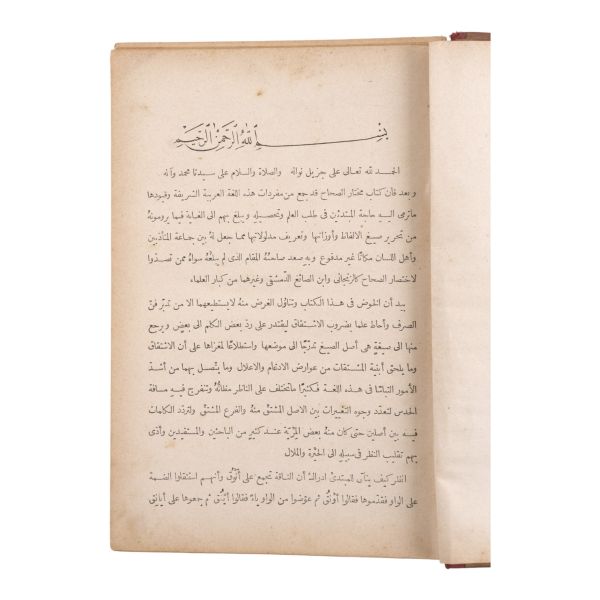 بسم الله الرحمن الرحيم
الحمد لله تعالى على جزيل نواله والصلاة والسلام على سيدنا محمد وآله
وبعد فان كتاب مختار الصحاح قد جمع من مفردات هذه اللغة العربية الشريفة وقيودها
ما ترمى اليه حاجة المبتدئين في طلب العلم وتحصيله ويبلغ بهم الى الغاية فيما يرومونه
من تحرير صيغ الالفاظ وأوزانها وتعريف مدلولاتها مما جعل له بين جماعة المتأدبين
وأهل اللسان مكانًا غير مدفوع وبه صعد صاحبه المقام الذى لم يبلغه سواه ممن تصدوا
لاختصار الصحاح كالزنجانى وابن الصائغ الدمشقى وغيرهما من كبار العلماء
بيد أن الخوض فى هذا الكتاب وتناول الغرض منه لا يستطيعهما الا من تدبر فن
الصرف وأحاط علما بضروب الاشتقاق ليقتدر على رد بعض الكلم الى بعض ويرجع
منها الى صيغة هى أصل الصيغ تدرّجًا الى موضعها واستطلاعًا لمغزاها على أن الاشتقاق
وما يلحق أبنية المشتقات من عوارض الادغام والاعلال وما يتصل بهما من أشد
الأمور التباسًا فى هذه اللغة فكثيرًا ما تختلف على الناظر مظانه وتنفرج فيه مسافة
الحدس لتعدد وجوه التغييرات بين الاصل المشتق منه والفرع المشتق ولتردد الكلمات
فيه بين أصلين حتى كان منه بعض المزيّة عند كثير من الباحثين والمستفيدين وأدى
بهم تقليب النظر فى سبيله الى الحيرة والملال
انظر كيف يتأتى للمبتدئ ادراك أن الناقة تجمع على أنوُق وأنهم استثقلوا الضمة
على الواو فقدّموها فقالوا أونُق ثم عوّضوا من الواو ياءً فقالوا أينُق ثم جمعوها على أيانق